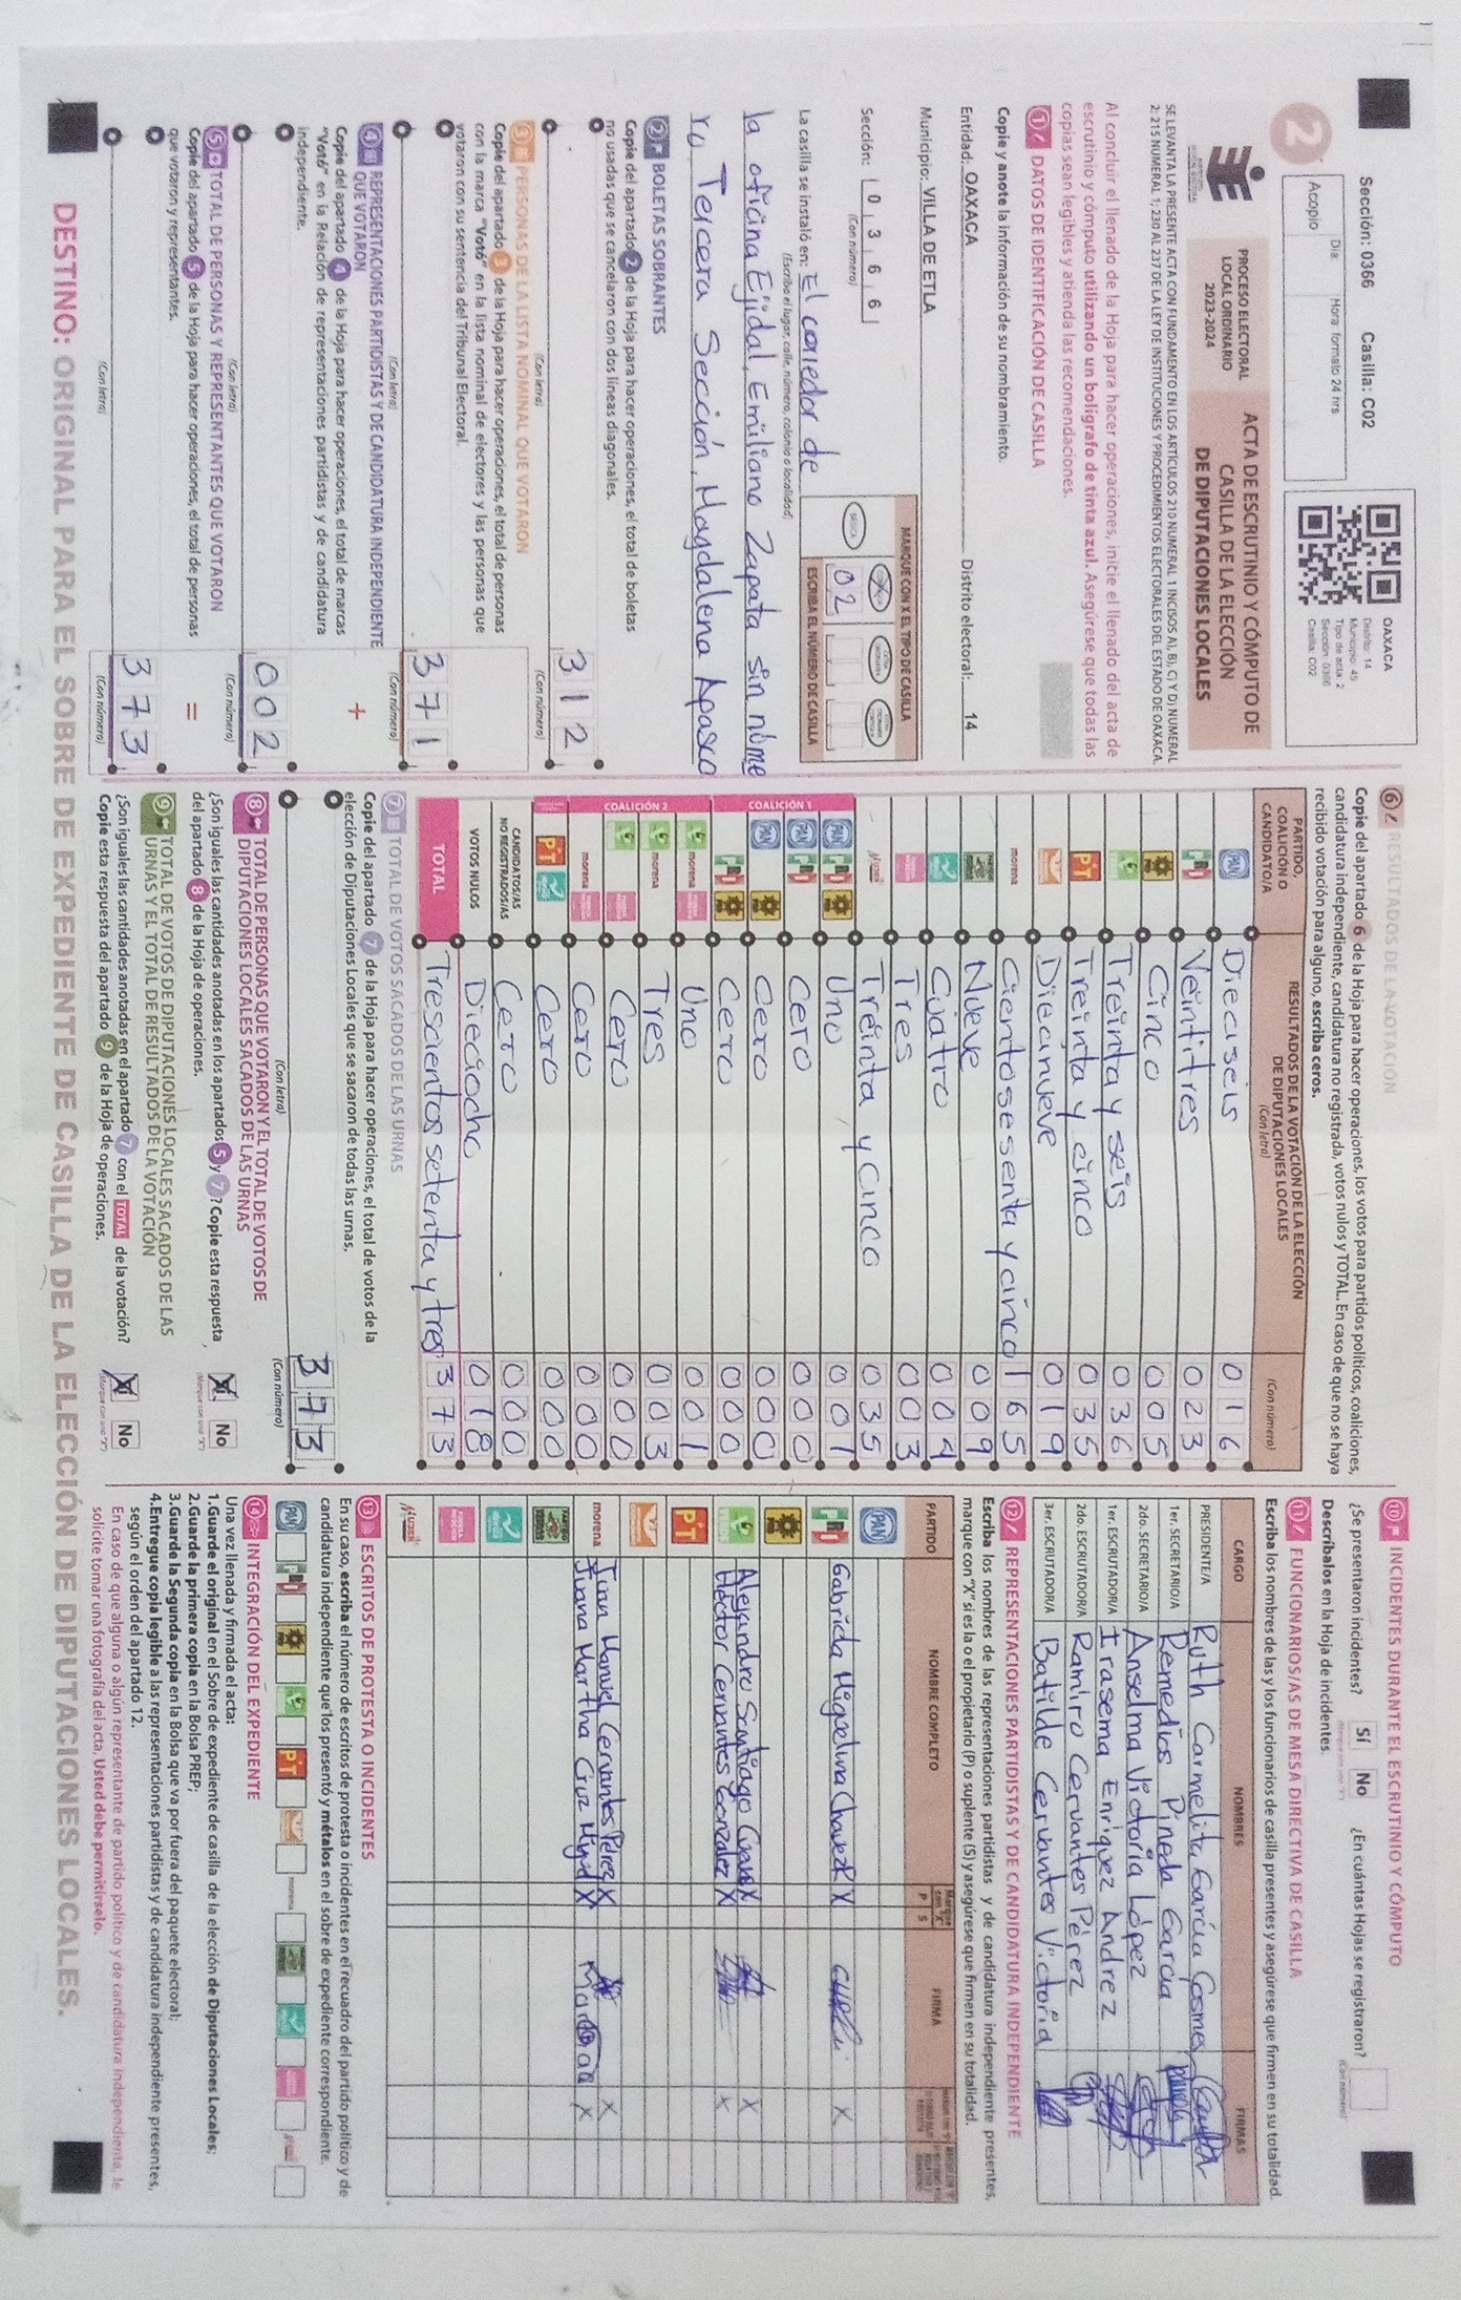 Sección: 0366 Casilla: C02
2
Acopio
Día:
Hora: formato 24 hrs
OAXACA
Distrito: 14
Municipio: 45
Tipo de acta: 2
Sección: 0366
Casilla: C02
PROCESO ELECTORAL
LOCAL ORDINARIO
2023-2024
ACTA DE ESCRUTINIO Y CÓMPUTO DE
CASILLA DE LA ELECCIÓN
DE DIPUTACIONES LOCALES
SE LEVANTA LA PRESENTE ACTA CON FUNDAMENTO EN LOS ARTÍCULOS 210 NUMERAL 1 INCISOS A), B), C) Y D) NUMERAL
2; 215 NUMERAL 1; 230 AL 237 DE LA LEY DE INSTITUCIONES Y PROCEDIMIENTOS ELECTORALES DEL ESTADO DE OAXACA.
Al concluir el llenado de la Hoja para hacer operaciones, inicie el llenado del acta de
escrutinio y cómputo utilizando un bolígrafo de tinta azul. Asegúrese que todas las
copias sean legibles y atienda las recomendaciones.
1 DATOS DE IDENTIFICACIÓN DE CASILLA
Copie y anote la información de su nombramiento.
Entidad: OAXACA Distrito electoral: 14
Municipio: VILLA DE ETLA
Sección: 0 3 6 6
(Con número)
MARQUE CON X EL TIPO DE CASILLA
BÁSICA
02
ESCRIBA EL NÚMERO DE CASILLA
La casilla se instaló en: El corredor de
(Escriba el lugar, calle, número, colonia o localidad)
la oficina Ejidal, Emiliano Zapata sin núme
ro Tercera Sección, Magdalena Apasco
2 BOLETAS SOBRANTES
Copie del apartado 2 de la Hoja para hacer operaciones, el total de boletas
no usadas que se cancelaron con dos líneas diagonales.
312
(Con letra) (Con número)
3 PERSONAS DE LA LISTA NOMINAL QUE VOTARON
Copie del apartado 3 de la Hoja para hacer operaciones, el total de personas
con la marca "Votó" en la lista nominal de electores y las personas que
votaron con su sentencia del Tribunal Electoral.
371
(Con letra) (Con número)
4 REPRESENTACIONES PARTIDISTAS Y DE CANDIDATURA INDEPENDIENTE
QUE VOTARON
+
Copie del apartado 4 de la Hoja para hacer operaciones, el total de marcas
"Votó" en la Relación de representaciones partidistas y de candidatura
independiente.
002
(Con letra) (Con número)
5 TOTAL DE PERSONAS Y REPRESENTANTES QUE VOTARON
=
Copie del apartado 5 de la Hoja para hacer operaciones, el total de personas
que votaron y representantes.
373
(Con letra) (Con número)
6 RESULTADOS DE LA VOTACIÓN
Copie del apartado 6 de la Hoja para hacer operaciones, los votos para partidos políticos, coaliciones,
candidatura independiente, candidatura no registrada, votos nulos y TOTAL. En caso de que no se haya
recibido votación para alguno, escriba ceros.
PARTIDO,
COALICIÓN O
CANDIDATO/A
RESULTADOS DE LA VOTACIÓN DE LA ELECCIÓN
DE DIPUTACIONES LOCALES
(Con letra)
(Con número)
PAN Dieciseis 016
PRI Veintitres 023
PRD Cinco 005
Treinta y seis 036
PT Treinta y cinco 035
Diecinueve 019
morena Ciento sesenta y cinco 165
Nueve 009
Cuatro 004
Tres 003
Treinta y Cinco 035
COALICIÓN 1
PAN PRI PRD Uno 001
PAN PRI Cero 000
PAN PRD Cero 000
PRI PRD Cero 000
COALICIÓN 2
morena Uno 001
morena Tres 003
Cero 000
morena Cero 000
PT Cero 000
CANDIDATOS/AS
NO REGISTRADOS/AS Cero 000
VOTOS NULOS Dieciocho 018
TOTAL Trescientos setenta y tres 373
7 TOTAL DE VOTOS SACADOS DE LAS URNAS
Copie del apartado 7 de la Hoja para hacer operaciones, el total de votos de la
elección de Diputaciones Locales que se sacaron de todas las urnas.
373
(Con letra) (Con número)
8 TOTAL DE PERSONAS QUE VOTARON Y EL TOTAL DE VOTOS DE
DIPUTACIONES LOCALES SACADOS DE LAS URNAS
¿Son iguales las cantidades anotadas en los apartados 5 y 7? Copie esta respuesta
del apartado 8 de la Hoja de operaciones.
X No
9 TOTAL DE VOTOS DE DIPUTACIONES LOCALES SACADOS DE LAS
URNAS Y EL TOTAL DE RESULTADOS DE LA VOTACIÓN
¿Son iguales las cantidades anotadas en el apartado 7 con el TOTAL de la votación?
Copie esta respuesta del apartado 9 de la Hoja de operaciones.
X No
10 INCIDENTES DURANTE EL ESCRUTINIO Y CÓMPUTO
¿Se presentaron incidentes? Sí No ¿En cuántas Hojas se registraron?
(Con número)
Descríbalos en la Hoja de incidentes.
11 FUNCIONARIOS/AS DE MESA DIRECTIVA DE CASILLA
Escriba los nombres de las y los funcionarios de casilla presentes y asegúrese que firmen en su totalidad.
CARGO NOMBRES FIRMAS
PRESIDENTE/A Ruth Carmelita García Cosme
1er. SECRETARIO/A Remedios Pineda Garcia
2do. SECRETARIO/A Anselma Victoria López
1er. ESCRUTADOR/A Irasema Enriquez Andrez
2do. ESCRUTADOR/A Ramiro Cervantes Pérez
3er. ESCRUTADOR/A Batilde Cervantes Victoria
12 REPRESENTACIONES PARTIDISTAS Y DE CANDIDATURA INDEPENDIENTE
Escriba los nombres de las representaciones partidistas y de candidatura independiente presentes,
marque con "X" si es la o el propietario (P) o suplente (S) y asegúrese que firmen en su totalidad.
PARTIDO NOMBRE COMPLETO Marque con "X" P S FIRMA
PAN
PRI Gabriela Miguelina Chavez X X
PRD
Alejandro Santiago X X
Hector Cervantes Gonzalez X X
PT
morena Juan Manuel Cervantes Pérez X X
Juana Martha Cruz X X
13 ESCRITOS DE PROTESTA O INCIDENTES
En su caso, escriba el número de escritos de protesta o incidentes en el recuadro del partido político y de
candidatura independiente que los presentó y métalos en el sobre de expediente correspondiente.
PAN PRI PRD PT morena
14 INTEGRACIÓN DEL EXPEDIENTE
Una vez llenada y firmada el acta:
1.Guarde el original en el Sobre de expediente de casilla de la elección de Diputaciones Locales;
2.Guarde la primera copia en la Bolsa PREP;
3.Guarde la Segunda copia en la Bolsa que va por fuera del paquete electoral;
4.Entregue copia legible a las representaciones partidistas y de candidatura independiente presentes,
según el orden del apartado 12.
En caso de que alguna o algún representante de partido político y de candidatura independiente, le
solicite tomar una fotografía del acta, Usted debe permitírselo.
DESTINO: ORIGINAL PARA EL SOBRE DE EXPEDIENTE DE CASILLA DE LA ELECCIÓN DE DIPUTACIONES LOCALES.